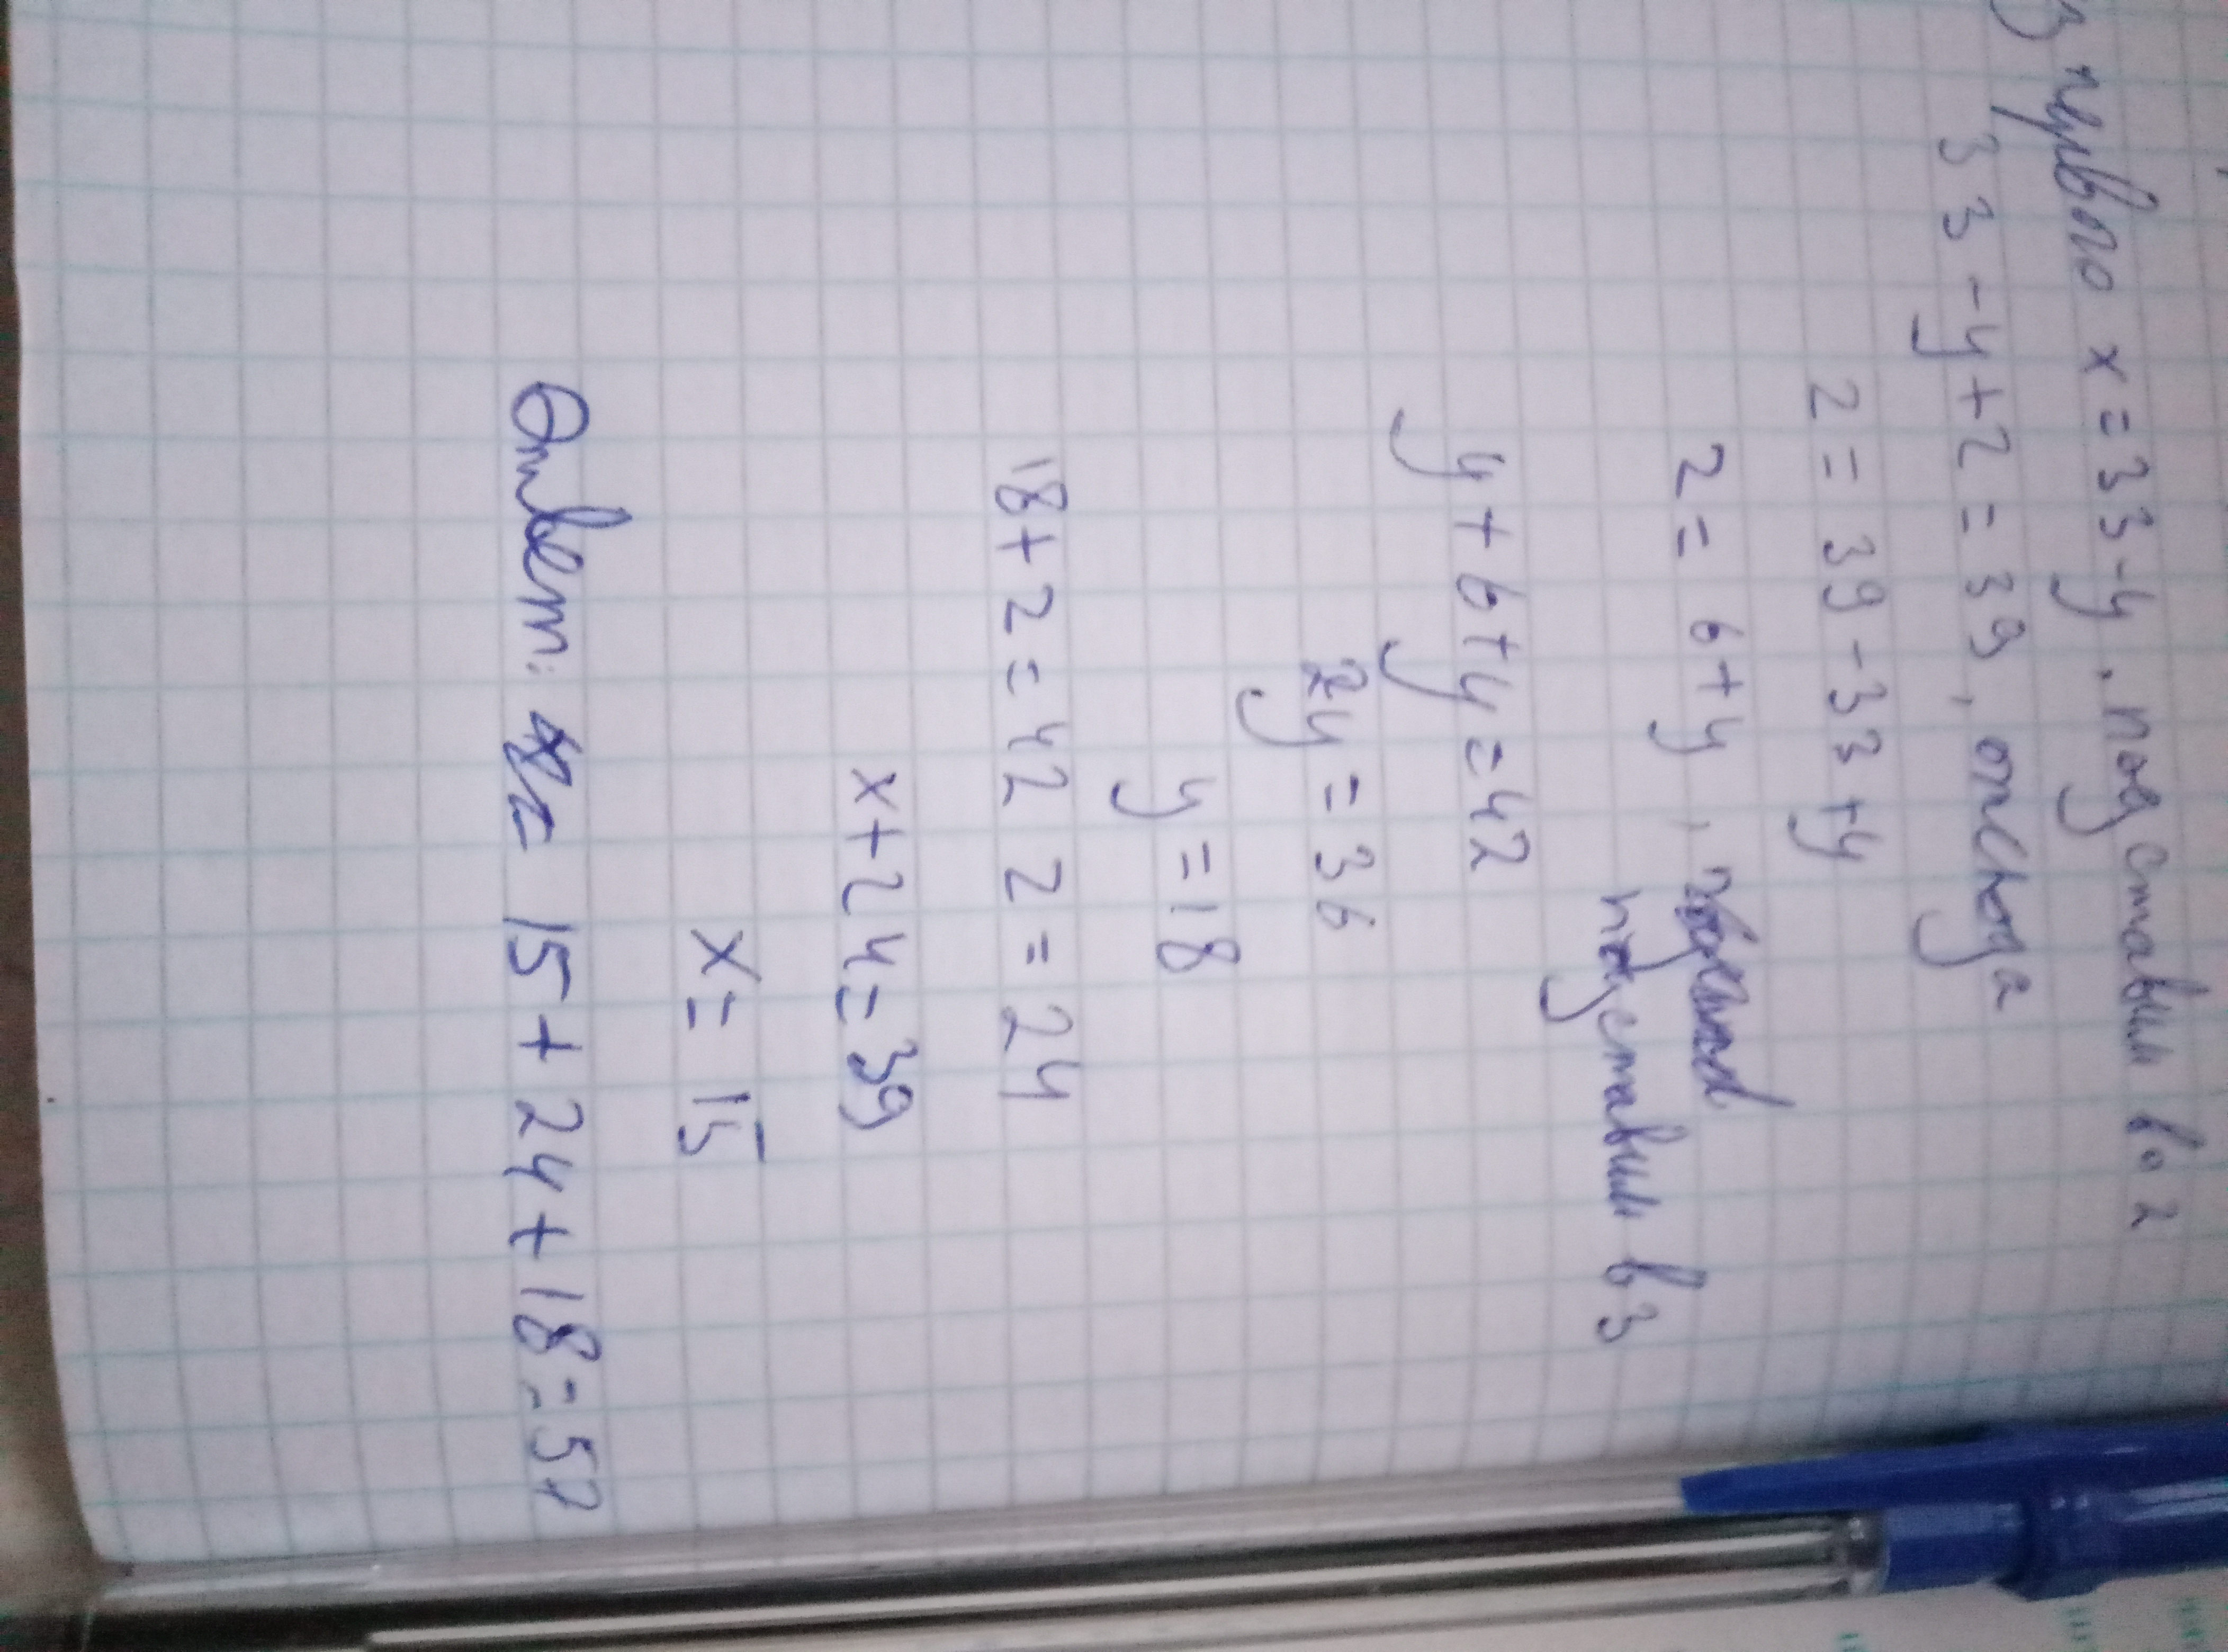 из первого x = 33 - y, подставим во 2
33 - y + z = 39, отсюда
z = 39 - 33 + y
z = 6 + y,
подставим в 3
y + 6 + y = 42
2y = 36
y = 18
18 + z = 42 z = 24
x + 24 = 39
x = 15
Ответ: 15 + 24 + 18 = 57